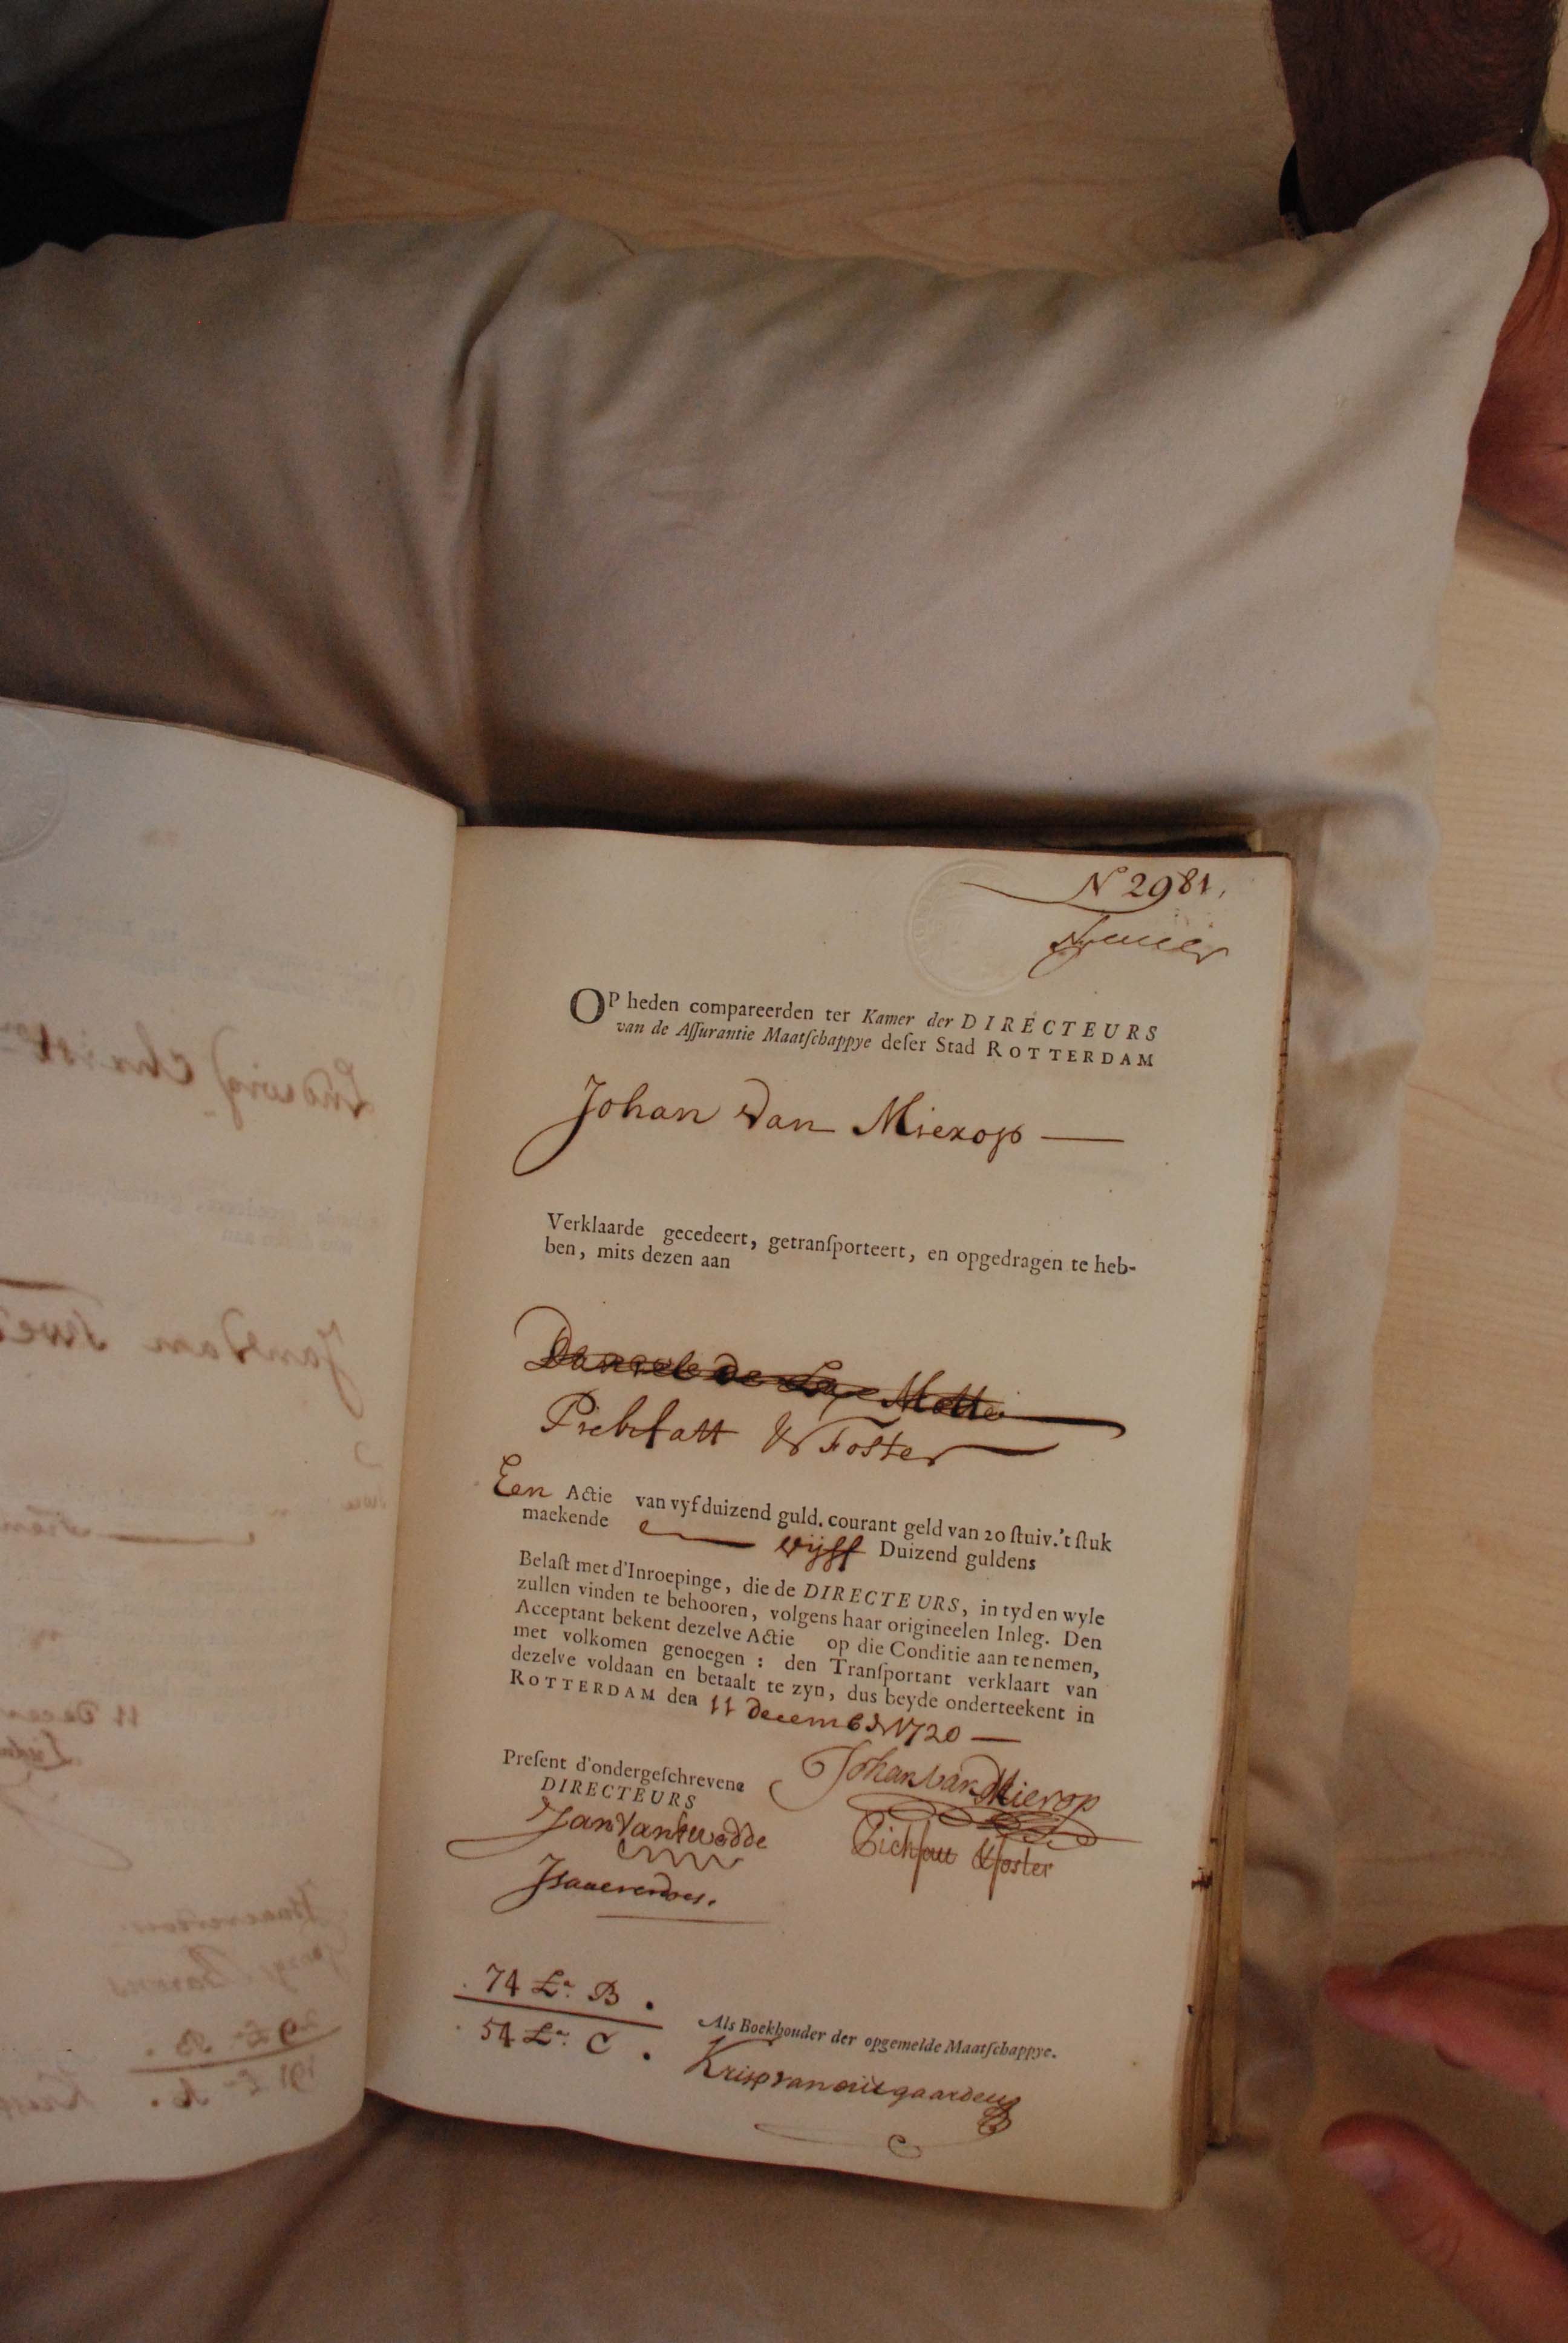 N 2981,
OP heden compareerden ter Kamer der DIRECTEURS
van de Aſſurantie Maatſchappye deſer Stad ROTTERDAM
Johan Van Mierop
Verklaarde gecedeert, getranſporteert, en opgedragen te heb-
ben, mits dezen aan
Daniel de La Motte
& Foster
Een Actie van vyf duizend guld. courant geld van 20 ſtuiv. 't ſtuk
maekende vijff Duizend guldens
Belaſt met d'Inroepinge, die de DIRECTEURS, in tyd en wyle
zullen vinden te behooren, volgens haar origineelen Inleg. Den
Acceptant bekent dezelve Actie op die Conditie aan te nemen,
met volkomen genoegen : den Tranſportant verklaart van
dezelve voldaan en betaalt te zyn, dus beyde onderteekent in
ROTTERDAM den 11 decembr 1720
Preſent d'ondergeſchrevene
DIRECTEURS
Johan van Mierop
& foster
74 Lr. B.
54 Lr. C.
Als Boekhouder der opgemelde Maatſchappye.